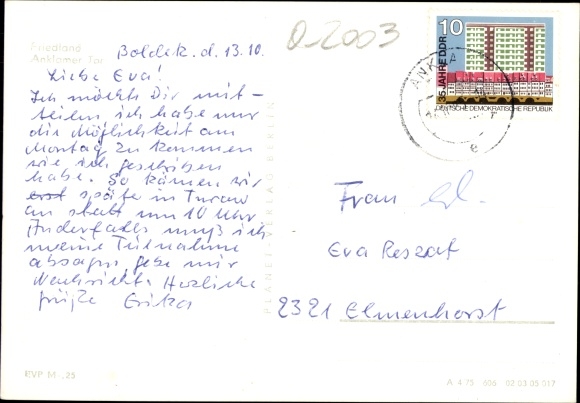 Friedland
Anklamer Tor
Boldek. d. 13.10.
0-2003
Liebe Eva!
Ich möchte Dir mit-
teilen ich habe nur
die Möglichkeit am
Montag zu kommen
wie ich geschrieben
habe. So kämen wir
erst später in
an statt um 10 Uhr
Anderfalls muß ich
meine Teilnahme
absagen gebe mir
Nachricht. Herzliche
Grüße Erika
Frau
Eva Reszat
2321 Elmenhorst
10
35 JAHRE DDR
DEUTSCHE DEMOKRATISCHE REPUBLIK
ANKLA
PLANET-VERLAG BERLIN
EVP M -,25
A 4 75 606 02 03 05 017